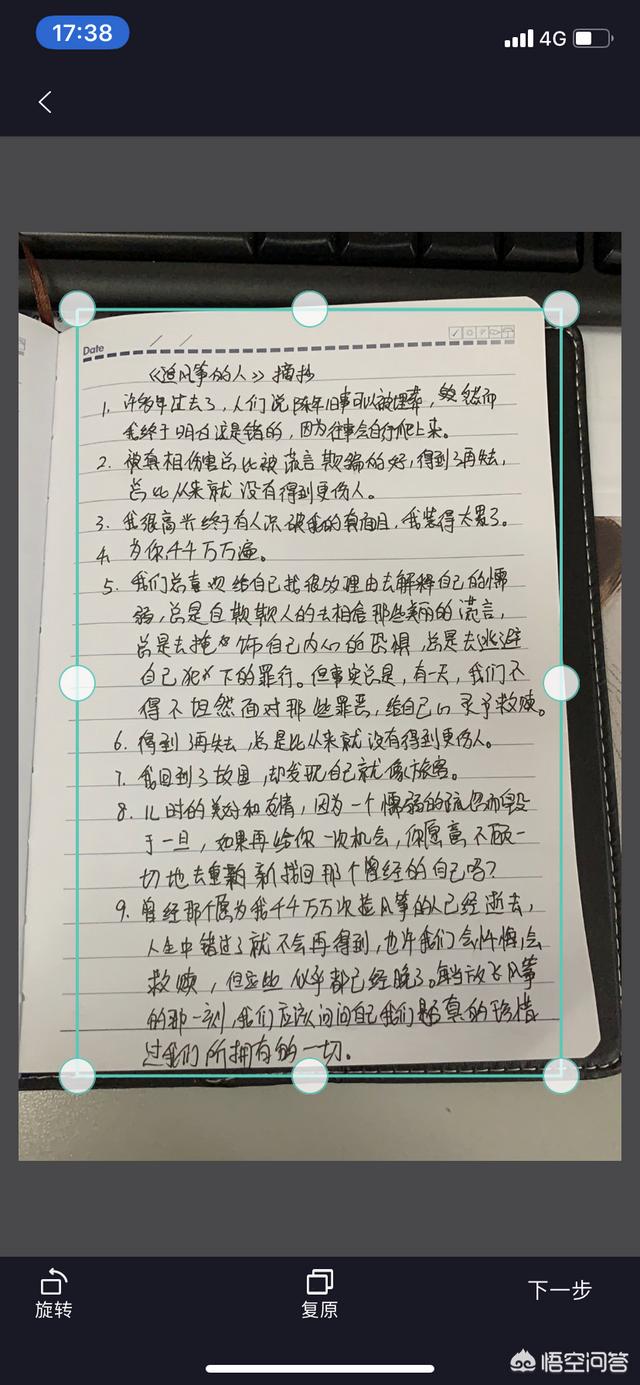 17:38
4G
Date
《追风筝的人》摘抄
1. 许多年过去了,人们说陈年旧事可以被埋葬,然而
我终于明白这是错的,因为往事会自行爬上来。
2. 被真相伤害总比被谎言欺骗的好,得到了再失去,
总比从来就没有得到更伤人。
3. 我很高兴终于有人识破我的真面目,我装得太累了。
4. 为你千千万万遍。
5. 我们总喜欢给自己找很多理由去解释自己的懦
弱,总是自欺欺人的去相信那些美丽的谎言,
总是去掩饰自己内心的恐惧,总是去逃避
自己犯下的罪行。但事实总是,有一天,我们不
得不坦然面对那些罪恶,给自己心灵予救赎。
6. 得到了再失去,总是比从来就没有得到更伤人。
7. 我回到了故国,却发现自己就像旅客。
8. 儿时的美好和友情,因为一个懦弱的疏忽而毁
于一旦,如果再给你一次机会,你愿意不顾一
切地去重新找回那个曾经的自己吗?
9. 曾经那个愿为我千千万万次追风筝的人已经逝去,
人生中错过了就不会再得到,也许我们会忏悔,会
救赎,但这些似乎都已经晚了。再当放飞风筝
的那一刻,我们应该问问自己我们是否真的珍惜
过我们所拥有的一切。
旋转
复原
下一步
悟空问答